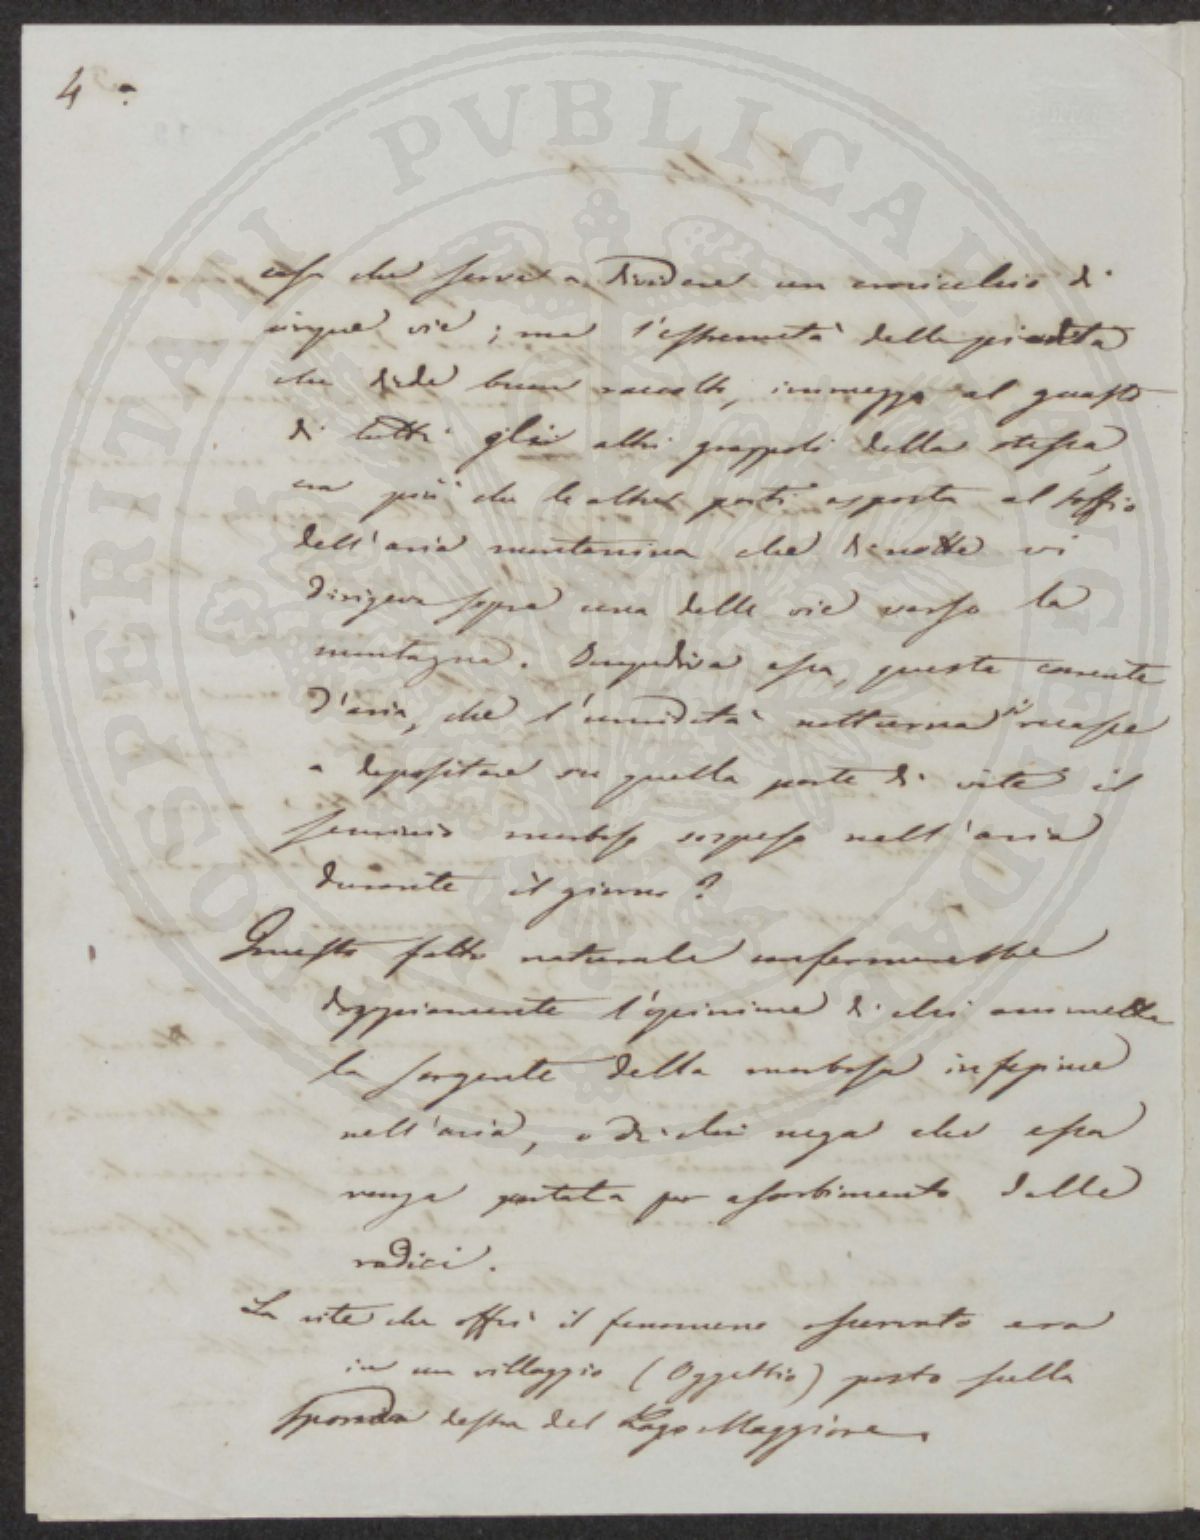 4.
PROSPERITATI PVBLICAE AVGENDAE
casa che serve a dividere un crocicchio di
cinque vie; ma l'estremità della pianta
che diede buon raccolto, immezzo al guasto
di tutti gli altri grappoli della stessa,
era più che le altre parti esposta al soffio
dell'aria montanina che di notte vi
dirigeva sopra una delle vie verso la
montagna. Impediva essa, questa corrente
d'aria, che l'umidità notturna si recasse
a depositare su quella parte di vite il
seminio morboso sospeso nell'aria
durante il giorno?
Questo fatto naturale confermerebbe
doppiamente l'opinione di chi ammette
la sorgente della morbosa infezione
nell'aria, o di chi nega che essa
venga portata per assorbimento dalle
radici.
La vite che offrì il fenomeno osservato era
in un villaggio (Oggebbio) posto sulla
sponda destra del Lago Maggiore.